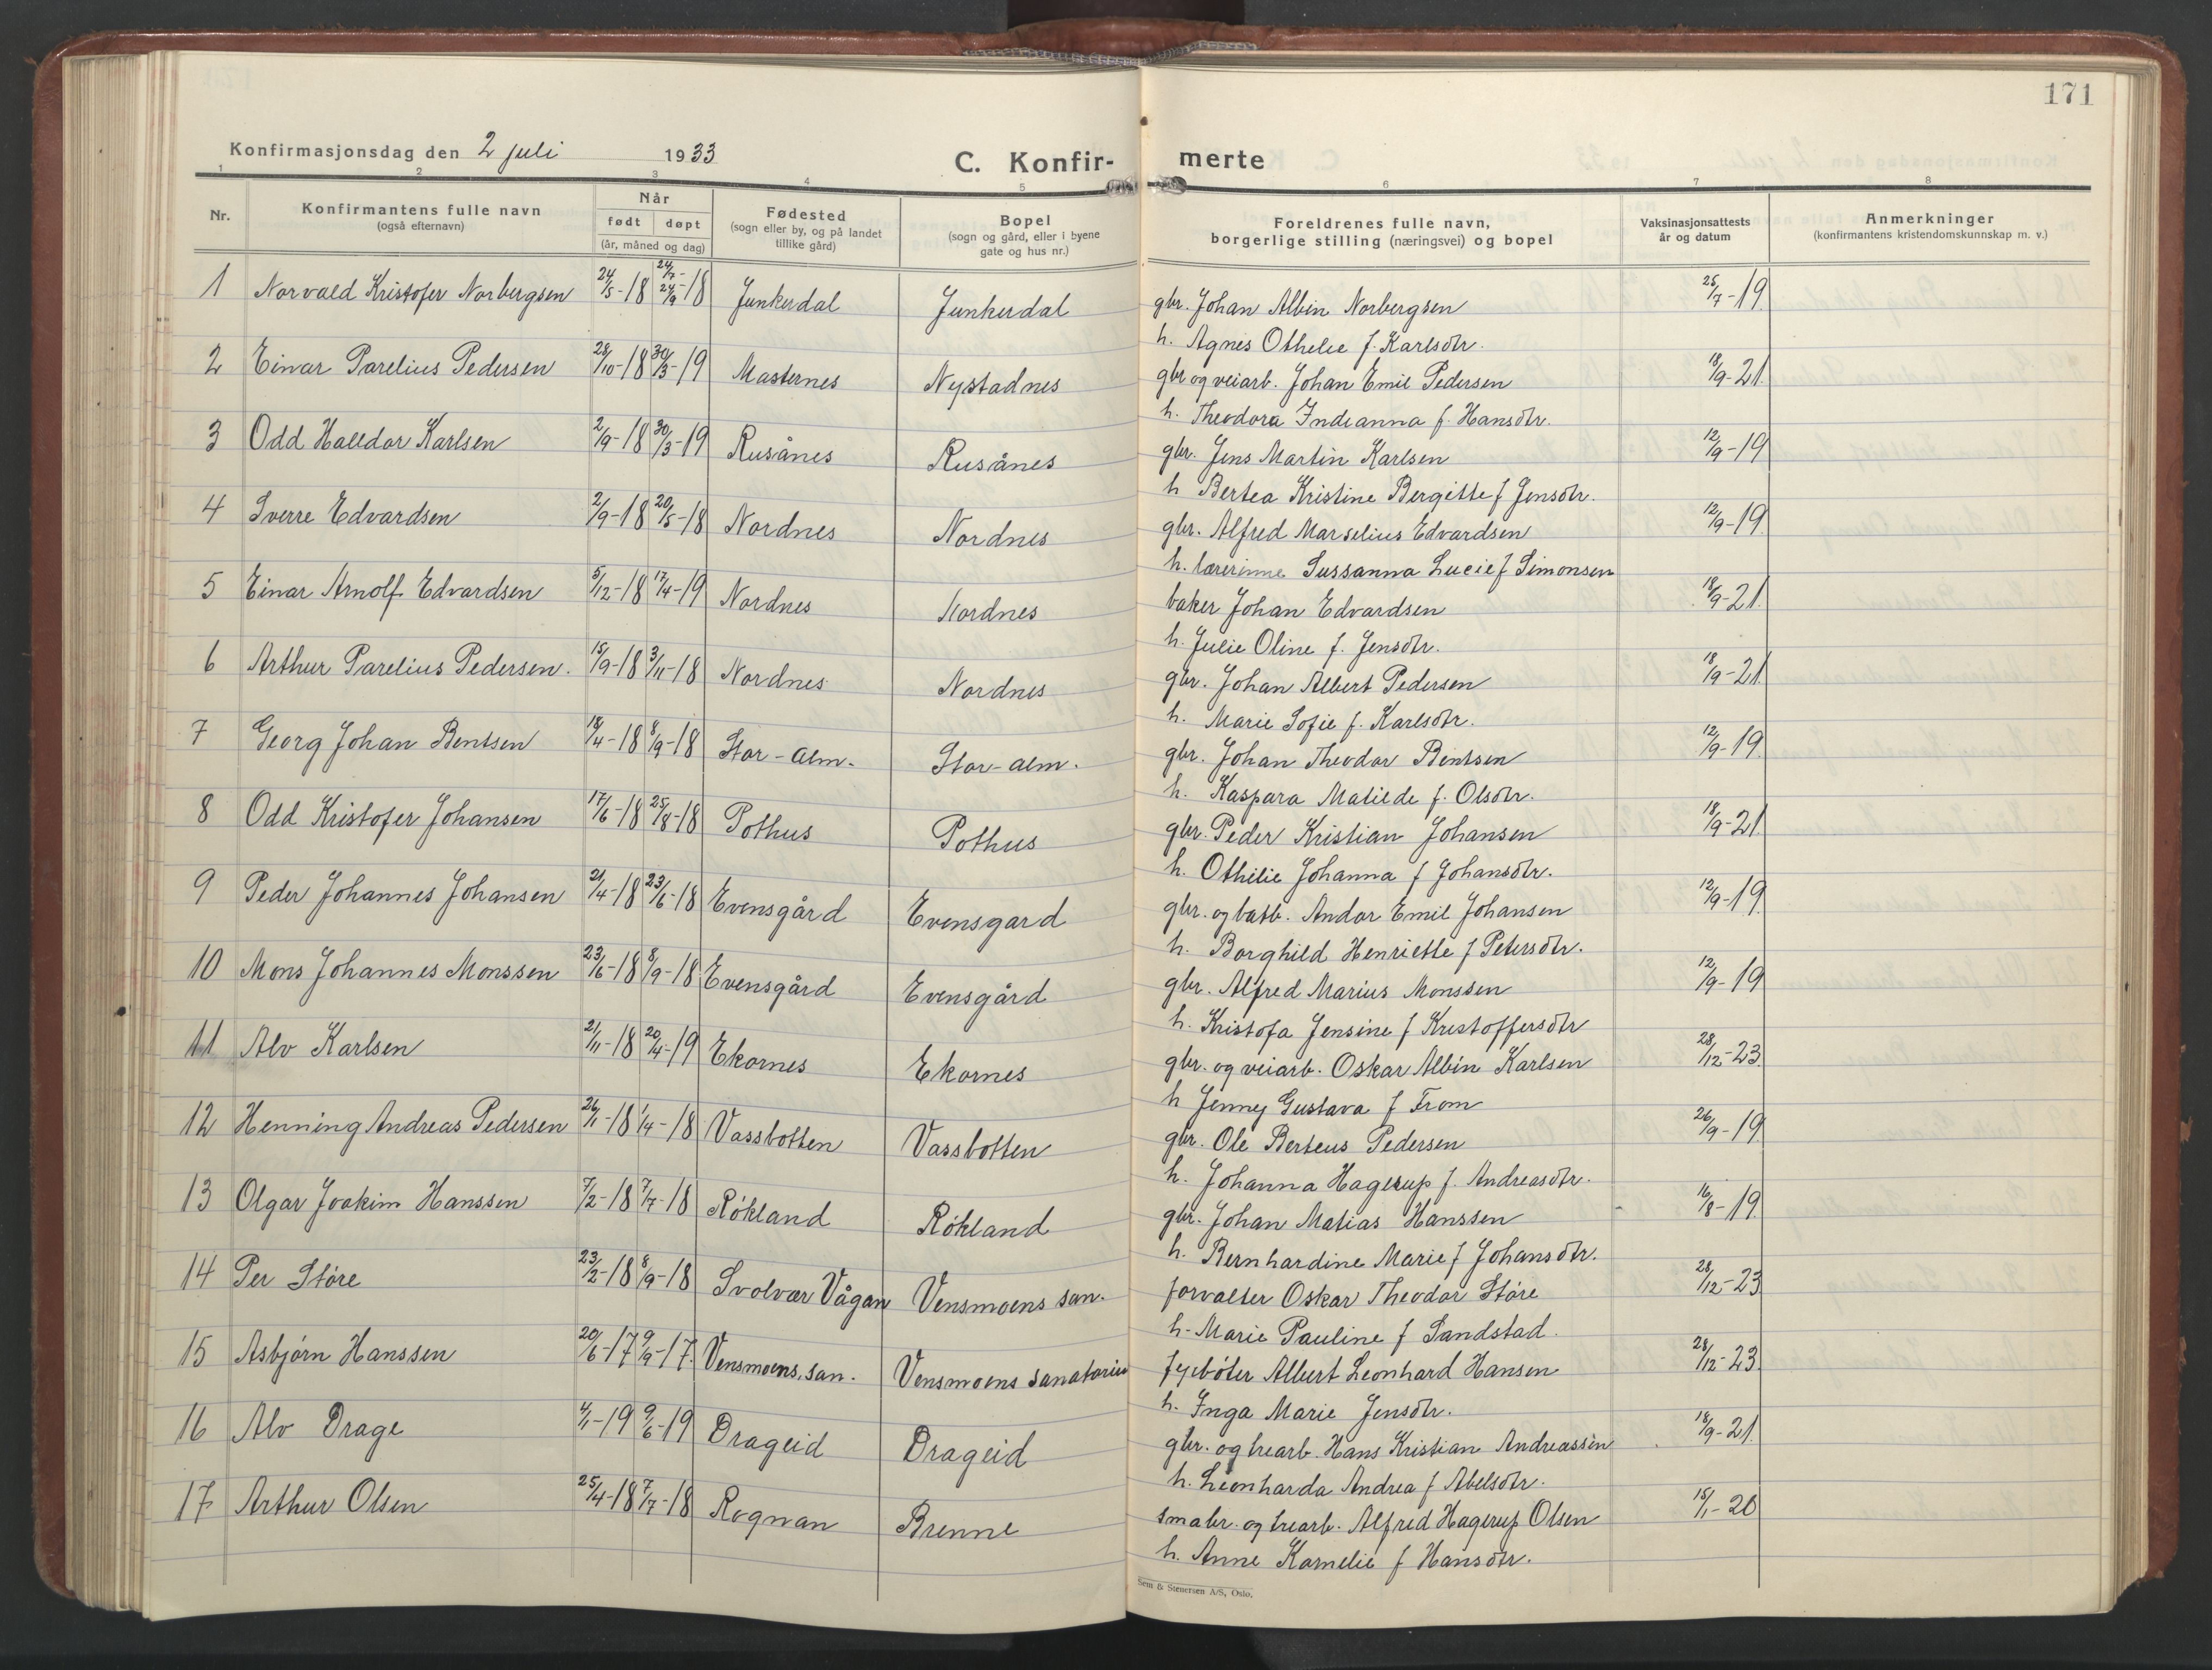 171
Konfirmasjonsdag den 2 juli 1933
C. Konfir- merte
1 2 3 4 5 6 7 8
Nr. Konfirmantens fulle navn (også efternavn) Når født døpt (år, måned og dag) Fødested (sogn eller by, og på landet tillike gård) Bopel (sogn og gård, eller i byene gate og hus nr.) Foreldrenes fulle navn, borgerlige stilling (næringsvei) og bopel Vaksinasjonsattests år og datum Anmerkninger (konfirmantens kristendomskunnskap m. v.)
1 Norvald Kristofer Norbergsen 24/5-18 24/7- 29/9-18 Junkerdal Junkerdal gbr. Johan Albin Norbergsen 25/7-19
h. Agnes Othelie f. Karlsdtr.
2 Einar Parelius Pedersen 28/10-18 30/3-19 Masternes Nystadnes gbr og veiarb. Johan Emil Pedersen 18/9-21
h. Theodora Indianna f. Hansdtr.
3 Odd Halldor Karlsen 2/9-18 30/3-19 Rusånes Rusånes gbr. Jens Martin Karlsen 12/9-19
h Bertea Kristine Bergitte f Jensdtr.
4 Sverre Edvardsen 2/9-18 20/5-18 Nordnes Nordnes gbr. Alfred Marselius Edvardsen 12/9-19
h. lærerinne Sussanna Lucie f Simonsen
5 Einar Arnolf Edvardsen 5/12-18 17/4-19 Nordnes Nordnes baker Johan Edvardsen 18/9-21
h. Julie Oline f. Jensdtr.
6 Arthur Parelius Pedersen. 15/9-18 3/11-18 Nordnes Nordnes gbr. Johan Albert Pedersen 18/9-21
h. Marie Sofie f. Karlsdtr.
7 Georg Johan Bentsen 18/4-18 8/9-18 Stor-alm. Stor-alm. gbr. Johan Theodor Bentsen 12/9-19
h. Kaspara Matilde f. Olsdtr.
8 Odd Kristofer Johansen 17/6-18 25/8-18 Pothus Pothus gbr. Peder Kristian Johansen 18/9-21
h. Othilie Johanna f Johansdtr.
9 Peder Johannes Johansen 21/4-18 23/6-18 Evensgård Evensgard gbr. og batb. Andor Emil Johansen 12/9-19
h. Borghild Henriette f Petersdtr.
10 Mons Johannes Monssen 23/6-18 8/9-18 Evensgård Evensgård gbr. Alfred Marius Monssen 12/9-19
h. Kristofa Jensine f Kristoffersdtr
11 Alv Karlsen 21/11-18 20/4-19 Ekornes Ekornes gbr. og veiarb. Oskar Albin Karlsen 28/12-23
h Jenny Gustava f From
12 Henning Andreas Pedersen 26/1-18 1/4-18 Vassbotten Vassbotten gbr. Ole Berteus Pedersen 26/9-19
h. Johanna Hagerup f. Andreasdtr.
13 Olgar Joakim Hanssen 7/2-18 7/7-18 Røkland Røkland gbr. Johan Matias Hanssen 16/8-19
h. Bernhardine Marie f Johansdtr.
14 Per Støre 23/2-18 8/9-18 Svolvær Vågan Vensmoens san. forvalter Oskar Theodor Støre 28/12-23
h. Marie Pauline f Sandstad.
15 Asbjørn Hanssen 20/6-17 9/9-17. Vensmoens. san. Vensmoens sanatorium fyrbøter Albert Leonhard Hansen 28/12-23
h. Inga Marie Jensdtr.
16 Alv Drage 4/1-19 9/6-19 Drageid Drageid gbr. og trearb. Hans Kristian Andreassen 18/9-21
h. Leonharda Andrea f Abelsdtr.
17 Arthur Olsen 25/4-18 7/7-18 Rognan Brenne småbr. og trearb. Alfred Hagerup Olsen 15/1-20
h. Anne Kornelie f Hansdtr.
Sem & Stenersen A/S, Oslo.